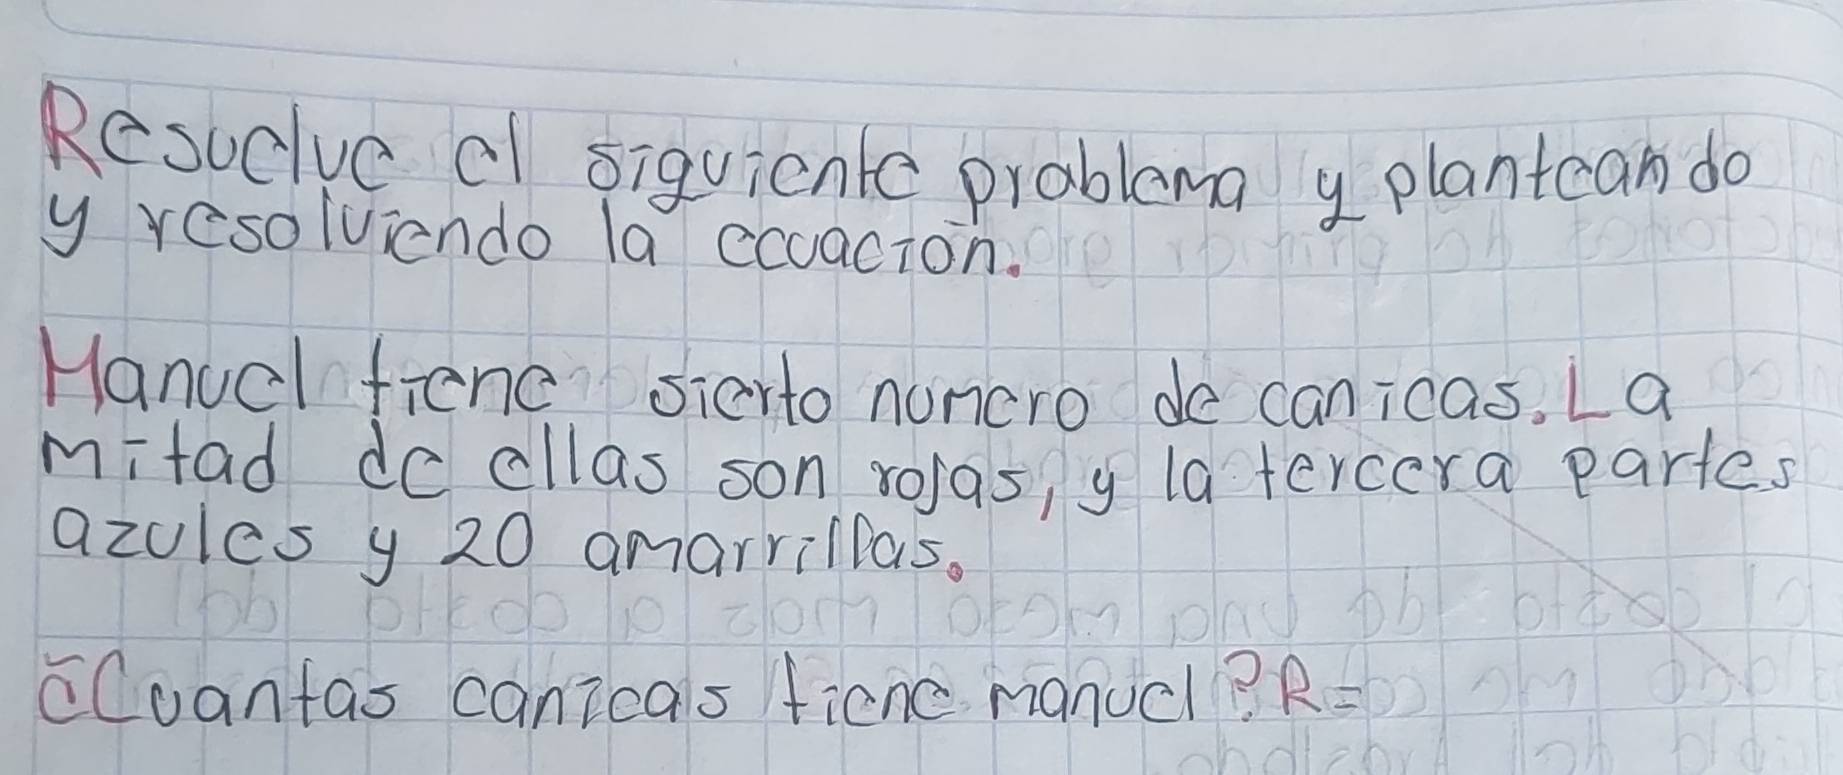 Resuelve el siguiente problema y planteando
y resolviendo la ecuación.
Manuel tiene sierto numero de canicas. La
mitad de ellas son rojas, y la tercera partes
azules y 20 amarrillas.
¿Cuantas canicas tiene manuel? R=